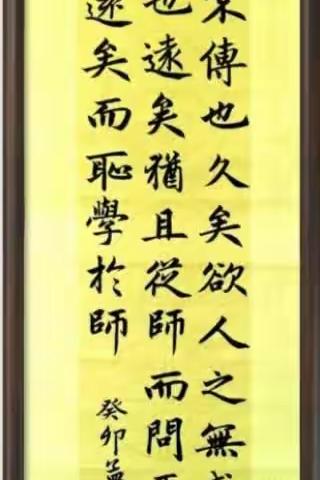 傳也久矣欲人之無
也遠矣猶且從師而問
遠矣而恥學於師
癸卯